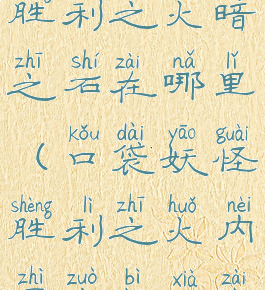 胜利之火暗
zhī shí zài nǎ lǐ
之石在哪里
kǒu dài yāo guài
（口袋妖怪
shèng lì zhī huǒ nèi
胜利之火内
zhì zuò bì xià zài